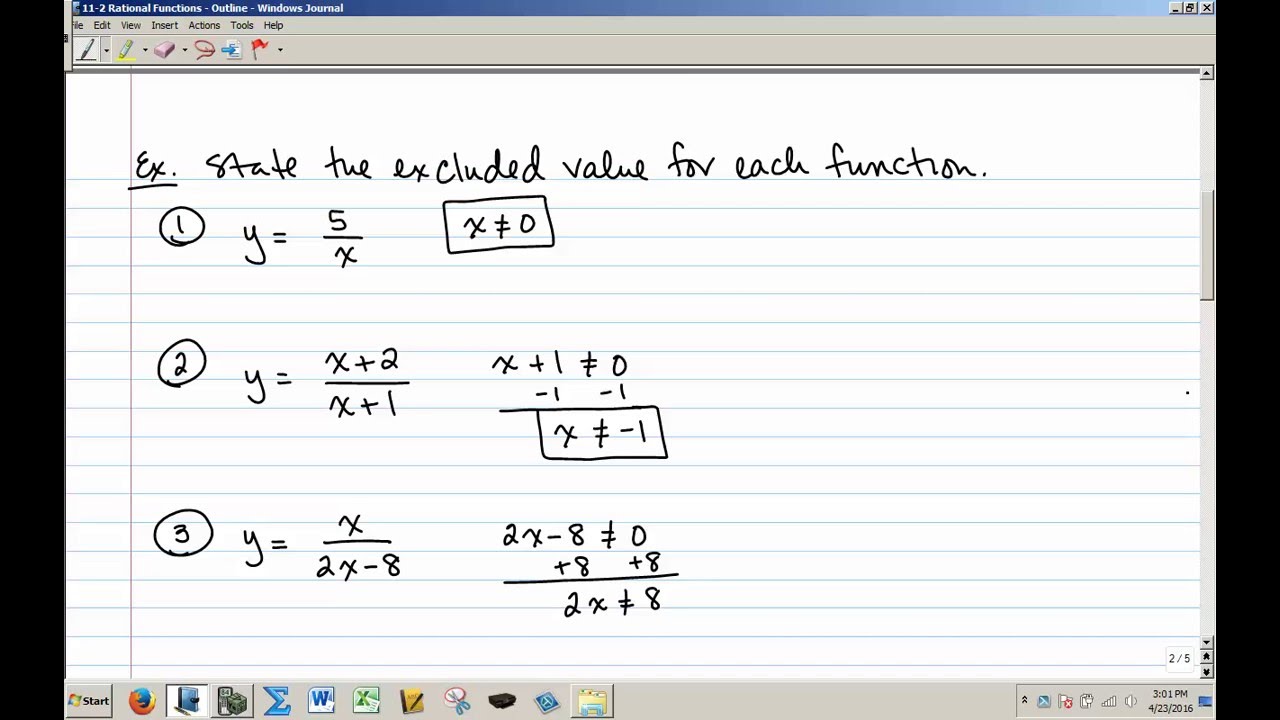 11-2 Rational Functions - Outline - Windows Journal
File Edit View Insert Actions Tools Help
Ex. State the excluded value for each function.
1 y = 5/x x ≠ 0
2 y = x+2/x+1 x + 1 ≠ 0
-1 -1
x ≠ -1
3 y = x/2x-8 2x-8 ≠ 0
+8 +8
2x ≠ 8
2 / 5
Start
3:01 PM
4/23/2016